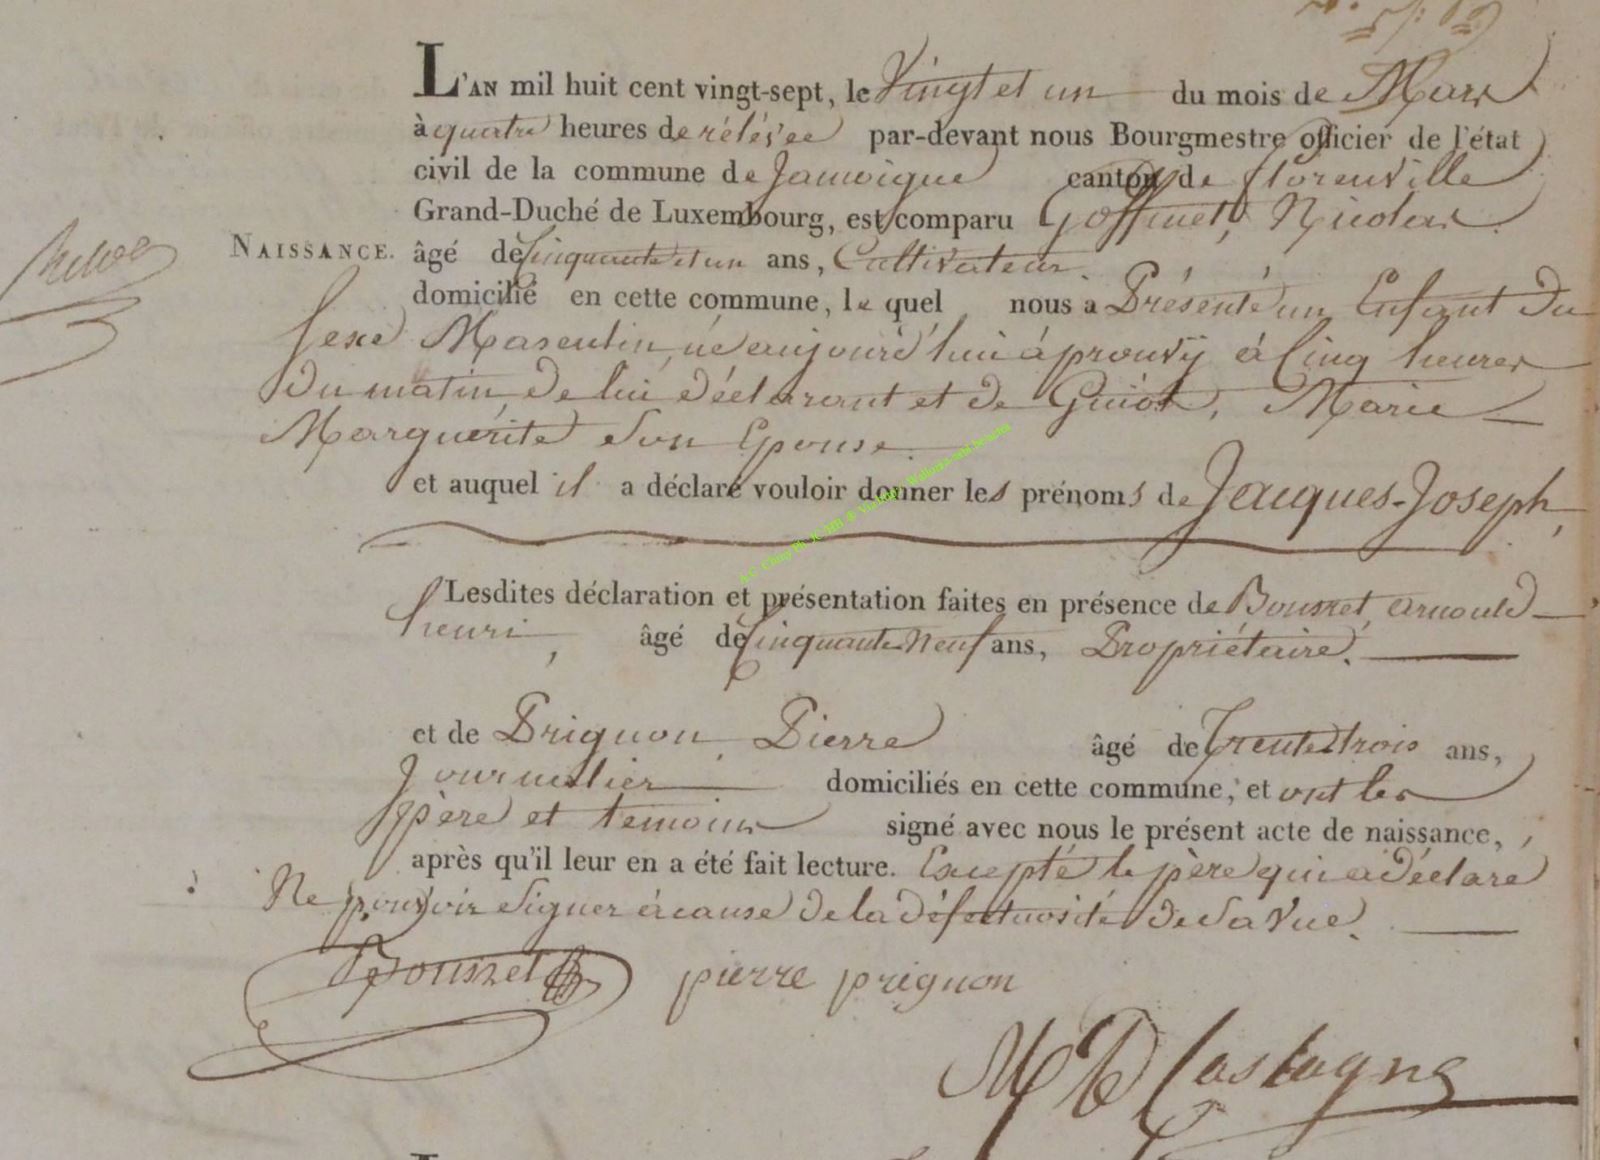 L'AN mil huit cent vingt-sept, le Vingt et un du mois de Mars
à quatre heures de rélévée par-devant nous Bourgmestre officier de l'état
civil de la commune de Jamoigne canton de florenville
Grand-Duché de Luxembourg, est comparu Goffinet, Nicolas
NAISSANCE. âgé de Cinquante et un ans, Cultivateur.
domicilié en cette commune, le quel nous a Présenté un Enfant du
sexe Masculin, né aujourd'hui à prouvÿ à Cinq heures
du matin, de lui déclarant et de Guiot, Marie
Marguérite son Epouse.
et auquel il a déclaré vouloir donner les prénoms de Jacques-Joseph,
Lesdites déclaration et présentation faites en présence de Bousset, arnould
henri, âgé de Cinquante Neuf ans, Propriétaire.
et de Prignon, Pierre âgé de Trente trois ans,
Journalier domiciliés en cette commune, et ont les
père et temoins signé avec nous le présent acte de naissance,
après qu'il leur en a été fait lecture. Excepté le père qui a déclaré
Ne pouvoir signer à cause de la défectuosité de sa Vue.
Bousset pierre prignon
Castagne